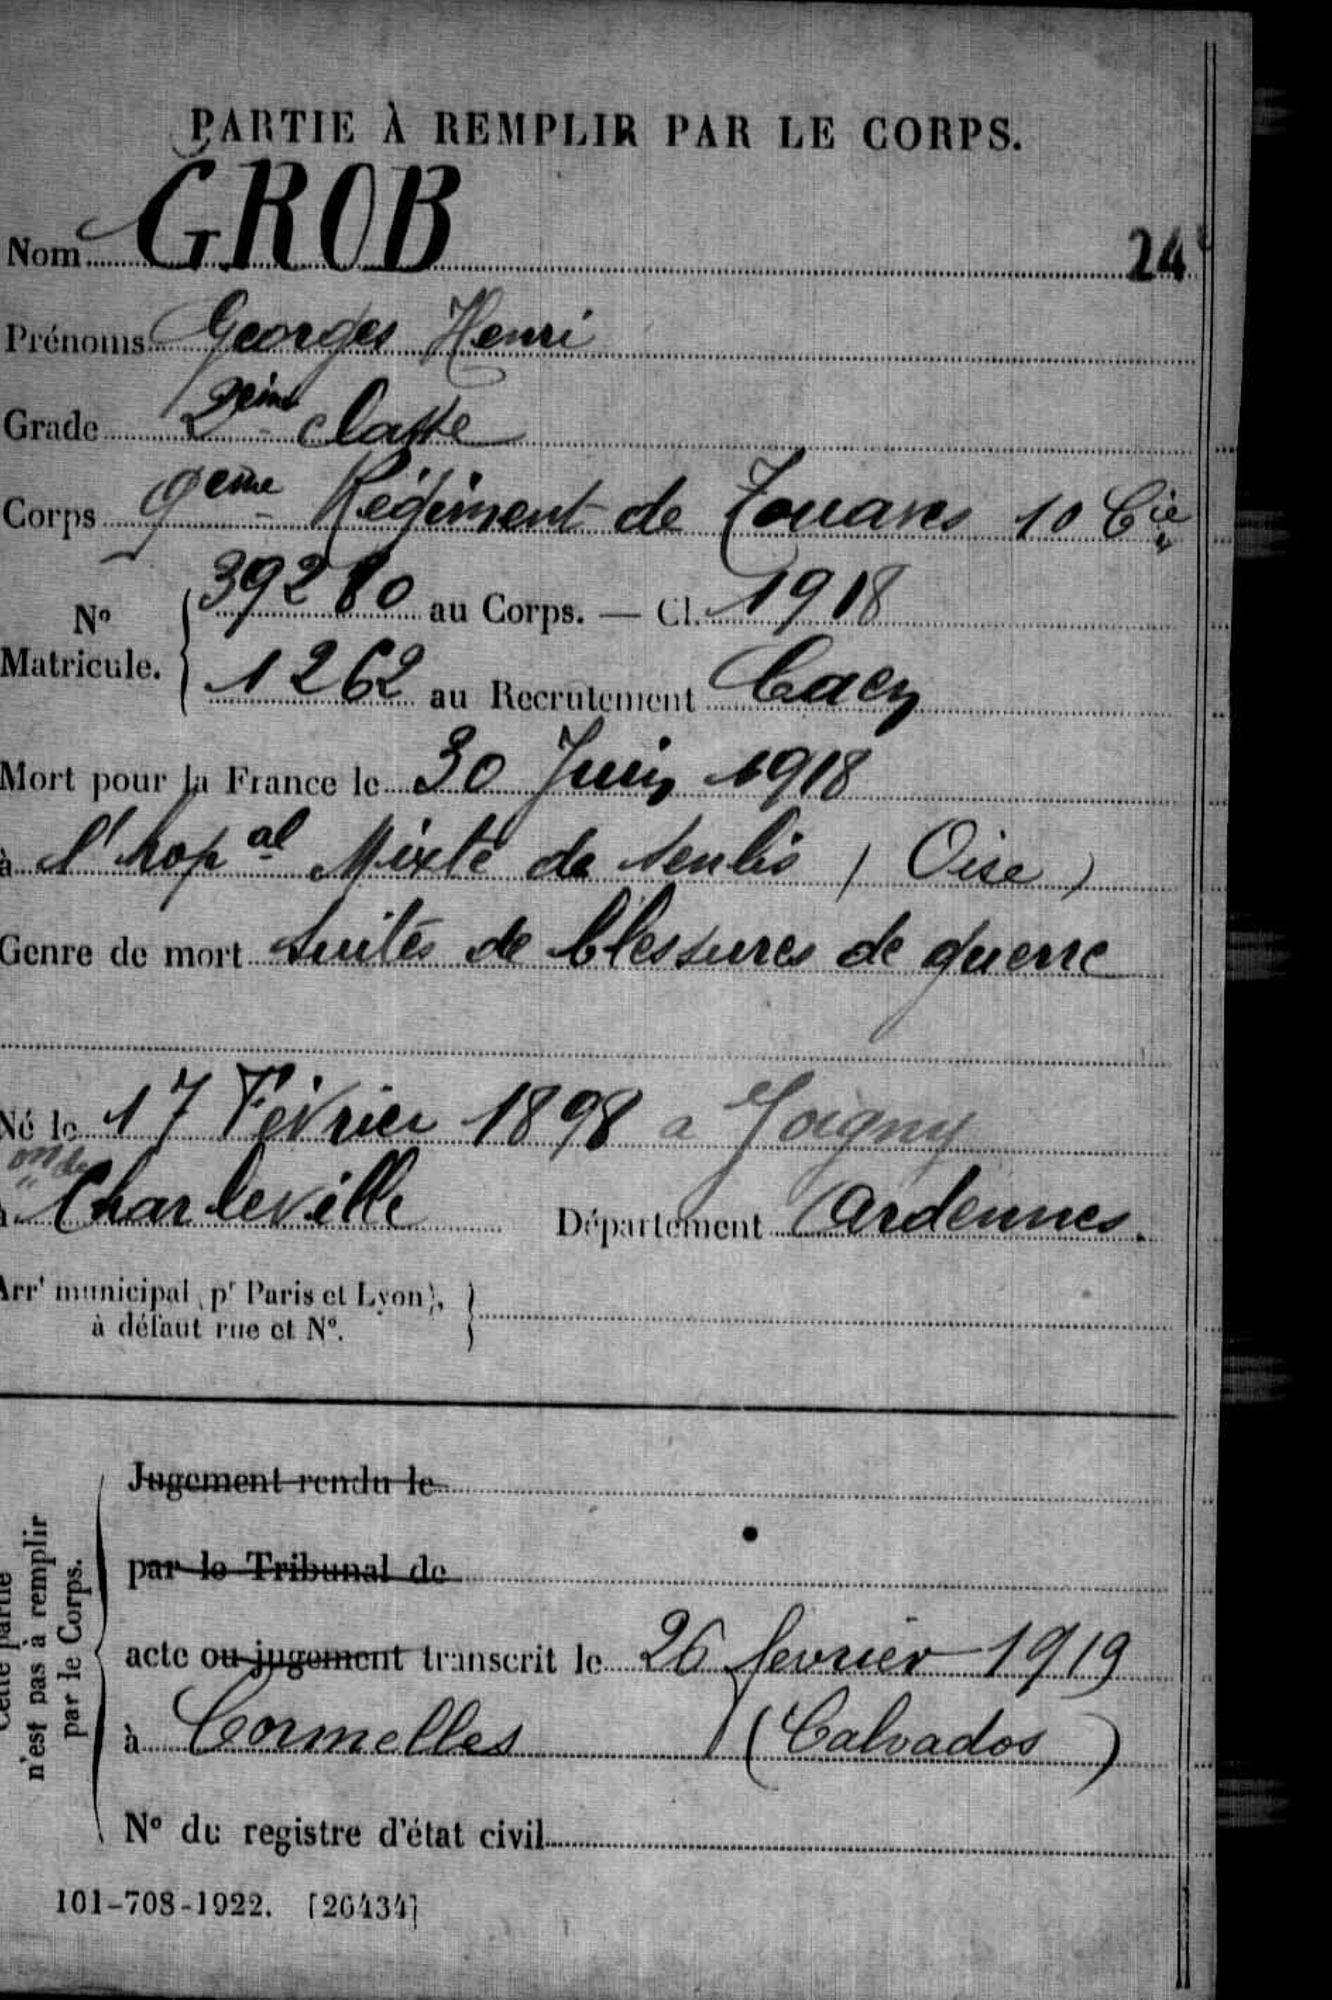 PARTIE À REMPLIR PAR LE CORPS.
Nom GROB 24
Prénoms Georges Henri
Grade 2eme classe
Corps 9eme Régiment de Zouaves 10 Cie
No 39280 au Corps. — Cl. 1918
Matricule. 1262 au Recrutement Caen
Mort pour la France le 30 Juin 1918
à l'hopal Mixte de Senlis (Oise)
Genre de mort suites de blessures de guerre
Né le 17 Février 1898 a Joigny
à Charleville Département Ardennes.
Arrt municipal (pr Paris et Lyon),
à défaut rue et No.
Jugement rendu le
par le Tribunal de
acte ou jugement transcrit le 26 fevrier 1919
à Cormelles (Calvados)
No du registre d'état civil
Cette partie
n'est pas à remplir
par le Corps.
101-708-1922. [26434]